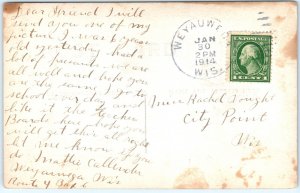 Dear Friend I will
send you one of my
picture I was 10 years
old yesterday had a
lot of presents we are
all well and hope you
are the same I go to
school every day and
like it the
Boards have hope you
will get this all right
let me know if you
do Mattie Callender
Weyauwega Wis
Route 4 Box 6
WEYAUW
JAN
30
2 PM
1914
WIS.
U.S. POSTAGE
1 CENT 1
Miss Rachel
City Point
Wis